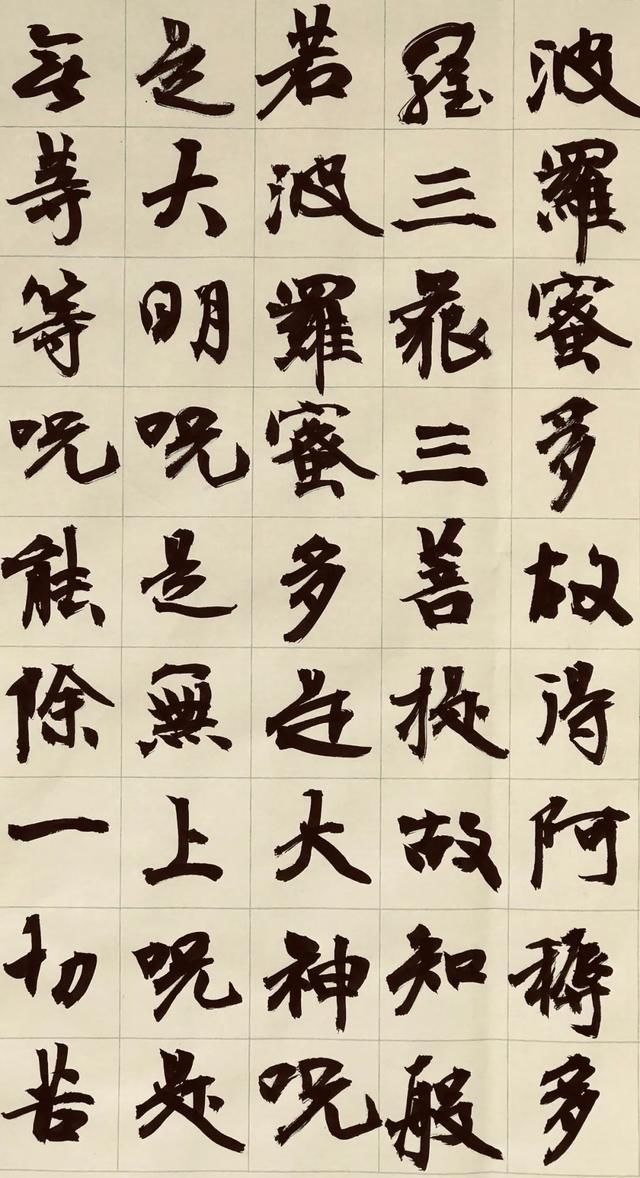 波羅蜜多故得阿耨多
羅三藐三菩提故知般
若波羅蜜多是大神呪
是大明呪是無上呪是
無等等呪能除一切苦